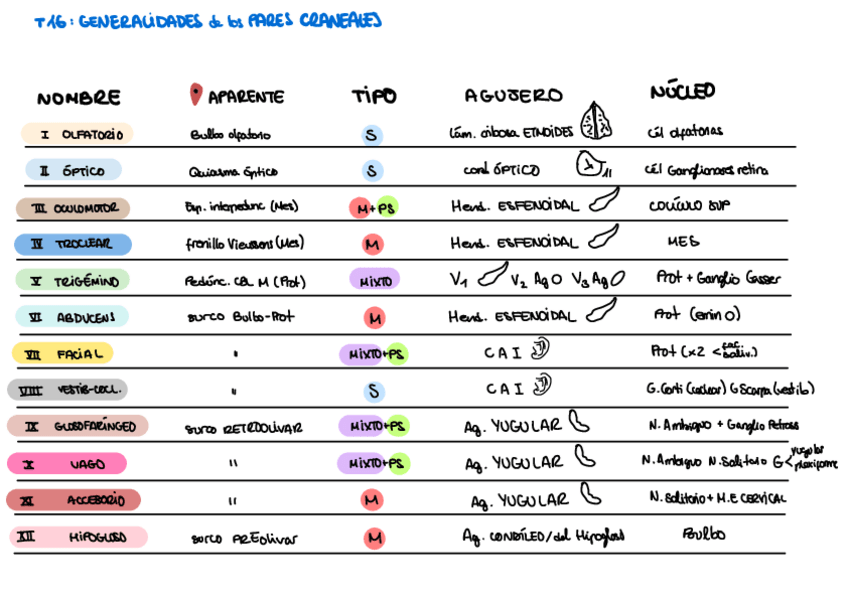 T16: GENERALIDADES de los PARES CRANEALES
NOMBRE APARENTE TIPO AGUJERO NÚCLEO
I OLFATORIO Bulbo olfatorio S Lám. cribosa ETMOIDES cél olfatorias
II ÓPTICO Quiasma óptico S cond. ÓPTICO II cél Ganglionares retina
III OCULOMOTOR Esp. interpedunc (Mes) M+PS Hend. ESFENOIDAL COLÍCULO SUP
IV TROCLEAR frenillo Vieussens (Mes) M Hend. ESFENOIDAL MES
V TRIGÉMINO Pedúnc. CBL M (Prot) MIXTO V1 V2 Ag O V3 Ag O Prot + Ganglio Gasser
VI ABDUCENS surco Bulbo-Prot M Hend. ESFENOIDAL Prot
VII FACIAL " MIXTO+PS CAI Prot (x2 < fac. saliv.)
VIII VESTIB-COCL. " S CAI G. Corti (coclear) G Scarpa (vestib)
IX GLOSOFARÍNGEO surco RETROOLIVAR MIXTO+PS Ag. YUGULAR N. Ambiguo + Ganglio Petroso
X VAGO " MIXTO+PS Ag. YUGULAR N. Ambiguo N. Solitario G < yugular plexiforme
XI ACCESORIO " M Ag. YUGULAR N. Solitario + M.E CERVICAL
XII HIPOGLOSO surco PREolivar M Ag. CONDÍLEO/del Hipogloso Bulbo